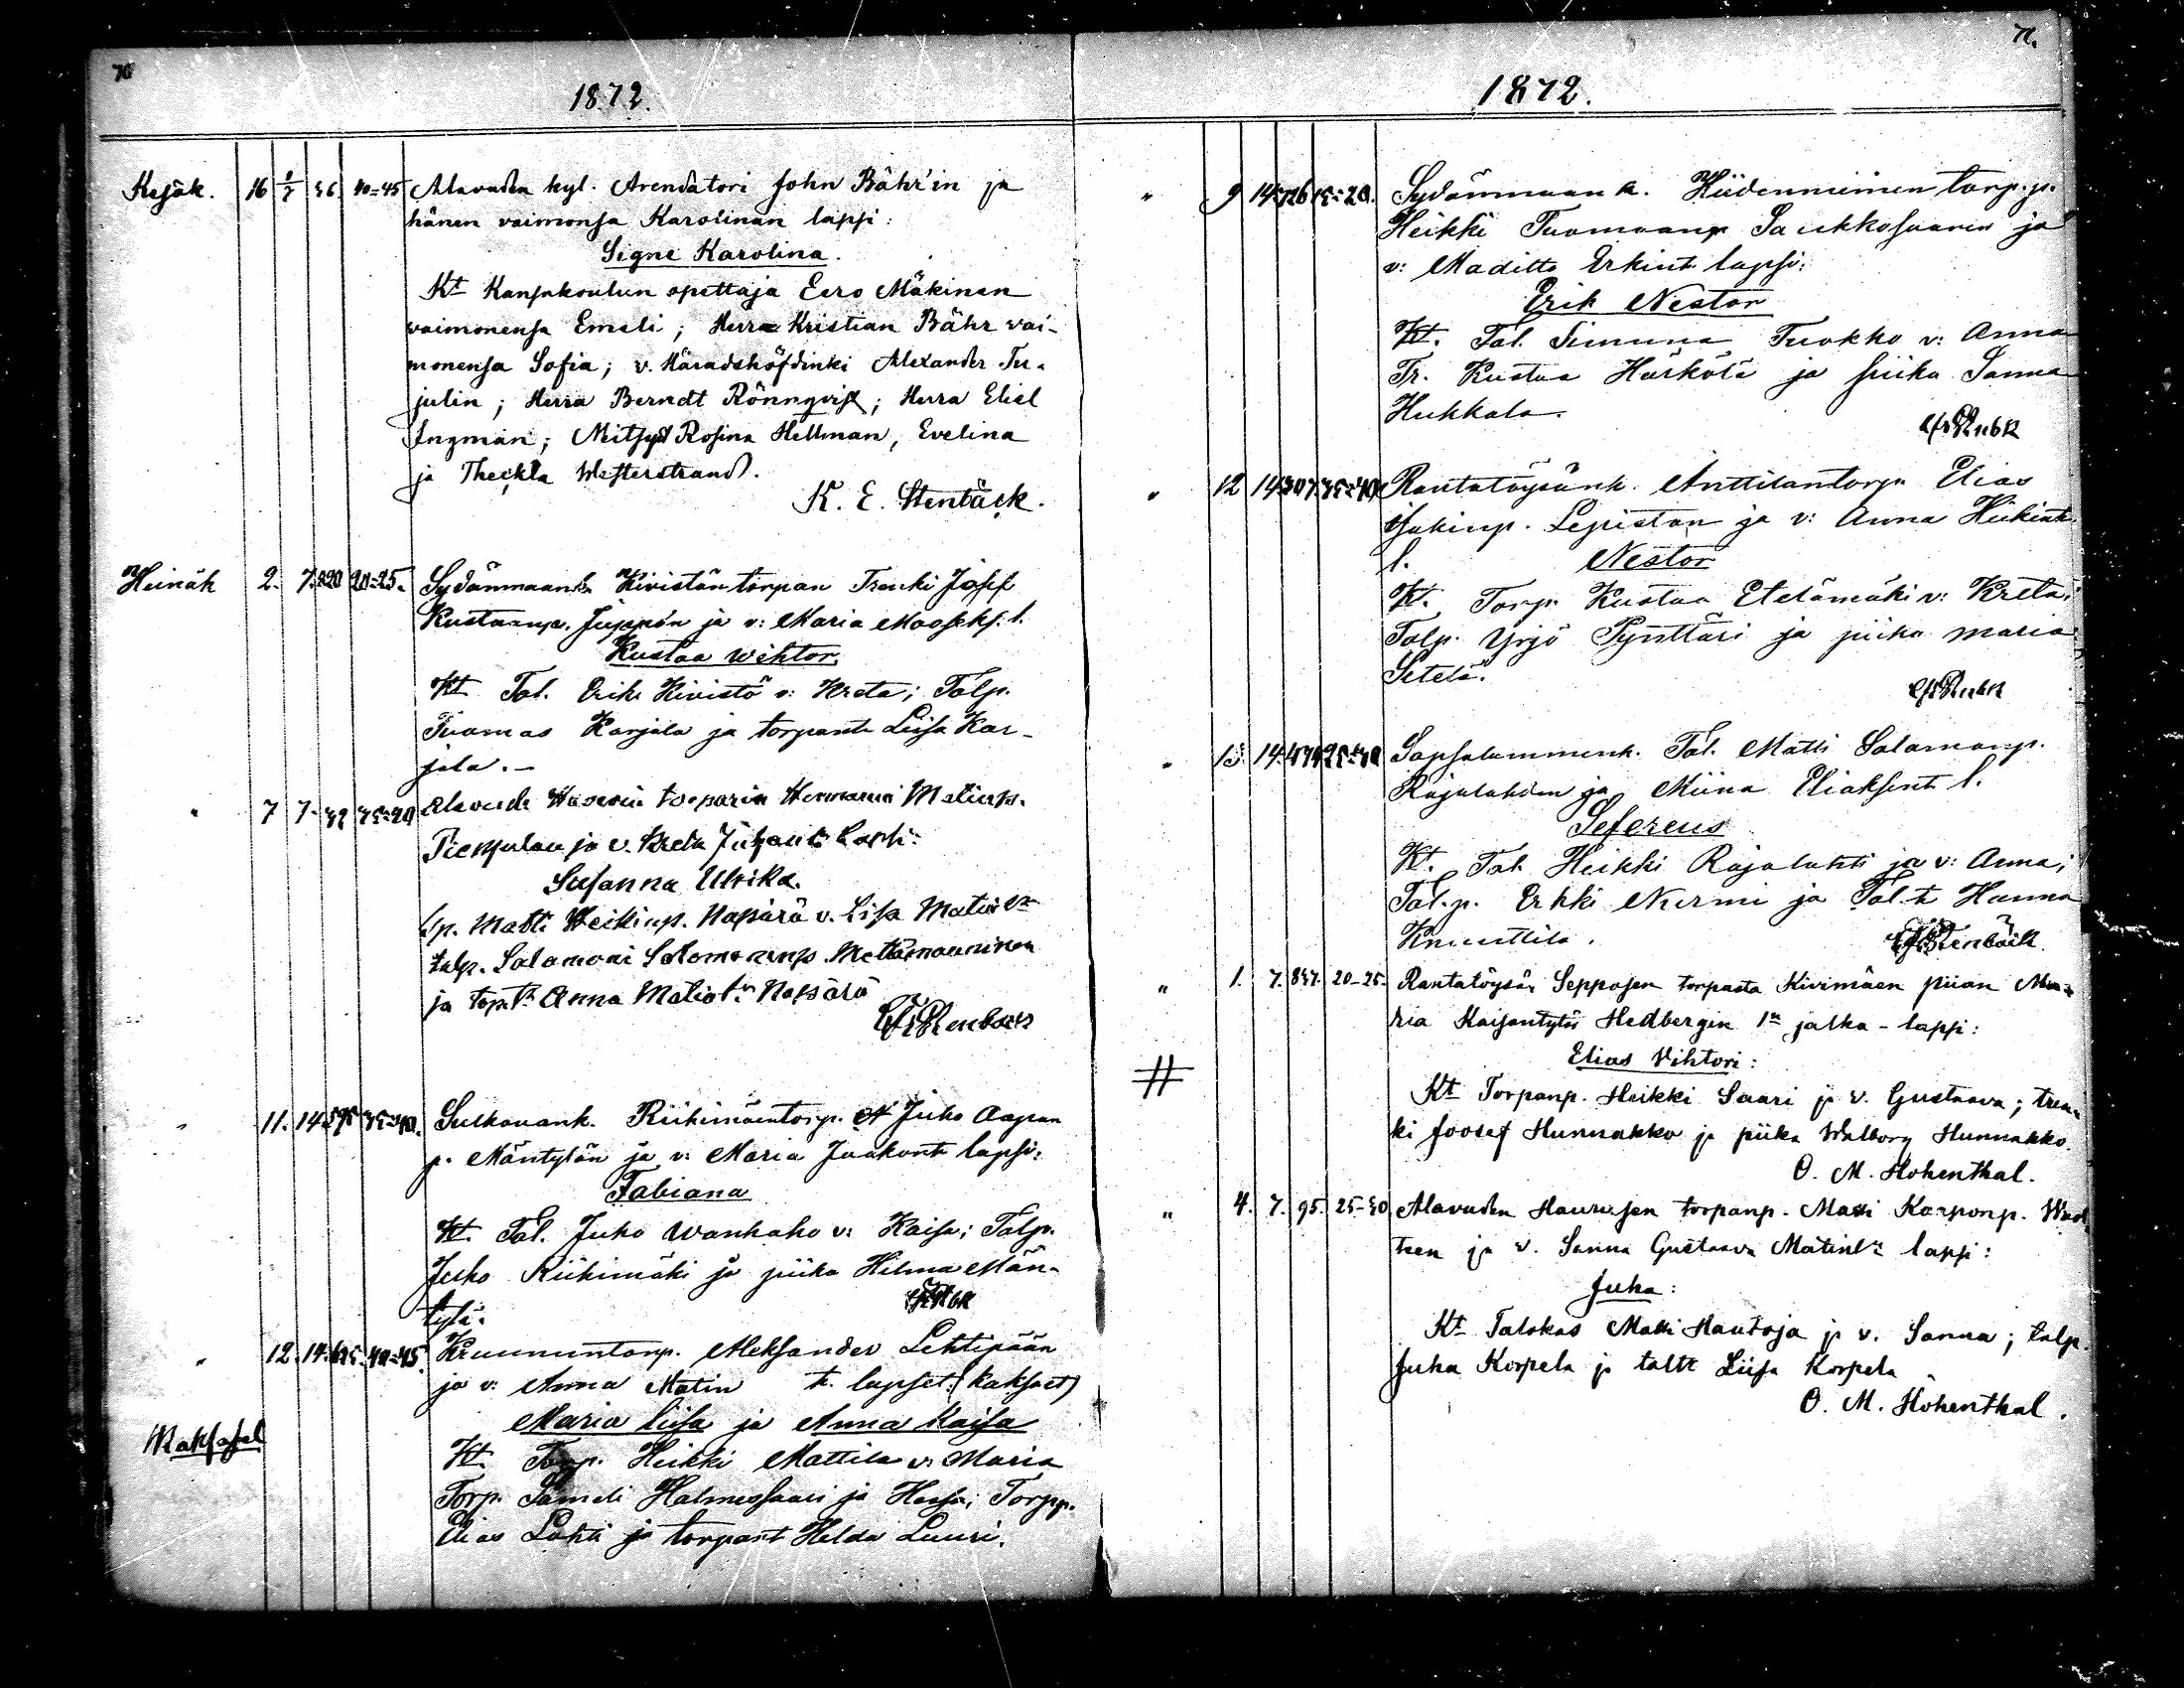 70
1872.
Kesäk. 16 1/7 36. 40-45 Alavuden kyl. Arendatori John Bähr'in ja
hänen vaimonsa Karolinan lapsi:
Signe Karolina.
Kt Kansakoulun opettaja Eero Mäkinen
vaimonensa Emeli; Herra Kristian Bähr vai-
monensa Sofia; v. Häradshöfdinki Alexander Tu-
julin; Herra Berndt Rönnqvist; Herra Eliel
Ingman; Neitsyt Rosina Hellman, Evelina
ja Theckla Westerstrand.
K. E. Stenbäck.
Heinäk 2. 7. 820 20-25. Sydänmaank. Kivistön torpan Trenki Josef
Kustaanp. Jusspón ja v: Maria Mooseks. l.
Kustaa Wihtor.
Kt. Tal. Erik Kivistö v: Kreta; Talp.
Tuomas Karjala ja torpant Liisa Kar-
jala.-
" 7 7. 32 35-40 Alavude torparin Hermanni Matinp.
ja v. Kreta Juhant. lapsi:
Susanna Ulrika.
Matti Heikinp. Napärä v. Lisa
talp. Salamoni Salomoninp. Mettämaaninen
ja top.tr Anna Napärä
11. 14. 595 35-40. Sulkavank. Riihimäentorp. Juho Aapan
p. Mäntylän ja v: Maria Jaakont. lapsi:
Fabiana
Kt. Tal. Juho Wankaho v: Kaisa; Talp.
Juho Riihimäki ja piika Hilma Män-
tylä.
" 12. 14. 40-45. Kruununtorp. Aleksander Lehtipään
ja v: Anna Matin t. lapset: (kaksoet)
Maria Liisa ja Anna Kaisa
Kt. Torp. Heikki Mattila v: Maria
Torp. Sameli Halmessaari ja Torpp.
Elias Lahti ja torpant Helda Luuri.
71.
1872.
" 9 14. 726 15-20. Sydänmaan k. Hiidenniemen torp. p.
Heikki Tuomaanp Saukkosaaren ja
v: Maditta Erkint. lapsi:
Erik Nestor
Kt. Tal. Simuna Tuokko v: Anna
Tr. Kustaa Härkölä ja piika Sanna
Hukkala.
" 12 14. 35-40 Rantatöysänk. Anttilantorp. Elias
Iisakinp. Lepistön ja v: Anna Heikint.
l. Nestor
Kt. Torp. Kustaa Etelämäki v: Kreta;
Talp. Yrjö Pynttäri ja piika Maria
Setelä.
" 13 14. Sapsalammenk. Tal. Matti Salamonp.
Rajalahden ja Miina Eliaksent l.
Sefereus
Kt. Tal. Heikki Rajalahti ja v: Anna;
Tal. p. Erkki Nurmi ja Tal. t. Hanna
Knuuttila.
" 1. 7. 847. 20-25. Rantatöysän Seppäsen torpasta Kivimäen piian Ma-
ria Kaisantytär Hedbergin 1n jalka-lapsi:
Elias Vihtori:
Kt Torpanp. Heikki Saari ja v. Gustaava; tren-
ki Joosef Hunnakko ja piika Walborg Hunnakko.
O. M. Hohenthal.
" 4. 7. 95. 25-30 Alavuden torpanp. Matti Kaaponp.
ja v. Sanna Gustaava Matintr lapsi:
Juha:
Kt Talokas Matti Hautoja ja v. Sanna; talp.
Juha Korpela ja taltt Liisa Korpela
O. M. Hohenthal.